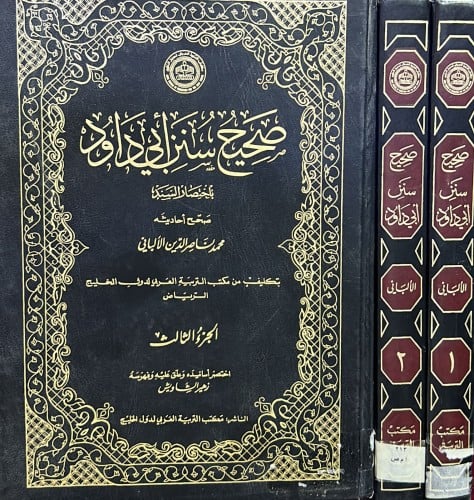 صحيح سنن أبي داود
باختصار السند
صحح أحاديثه
محمد ناصر الدين الألباني
بتكليف من مكتب التربية العربي لدول الخليج
الرياض
الجزء الثالث
اختصر أسانيده وعلق عليه وفهرسه
زهير الشاويش
الناشر: مكتب التربية العربي لدول الخليج
صحيح
سنن
أبي داود
الألباني
٢
مكتب
التربية
صحيح
سنن
أبي داود
الألباني
١
مكتب
التربية